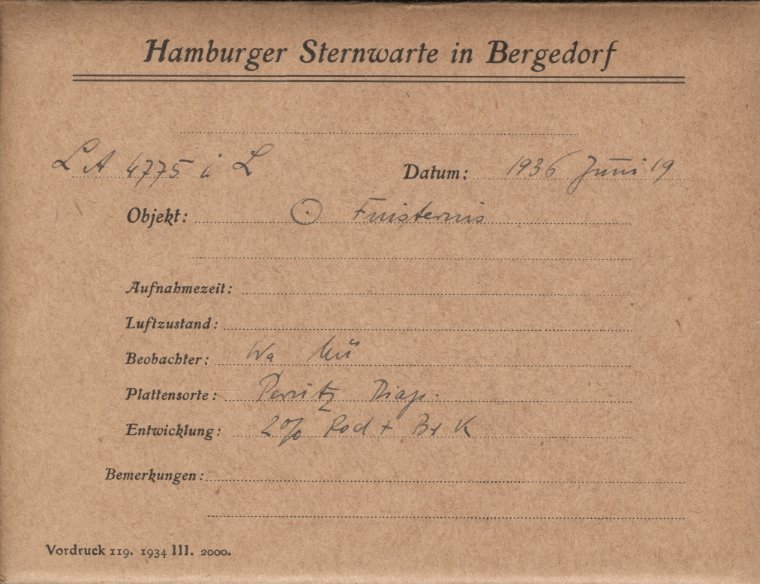 Hamburger Sternwarte in Bergedorf
LA 4775 i L Datum: 1936 Juni 19
Objekt: ☉ Finsternis
Aufnahmezeit:
Luftzustand:
Beobachter: Wa
Plattensorte: Perutz Diap.
Entwicklung: 2% Rod + Br K
Bemerkungen:
Vordruck 119. 1934 III. 2000.